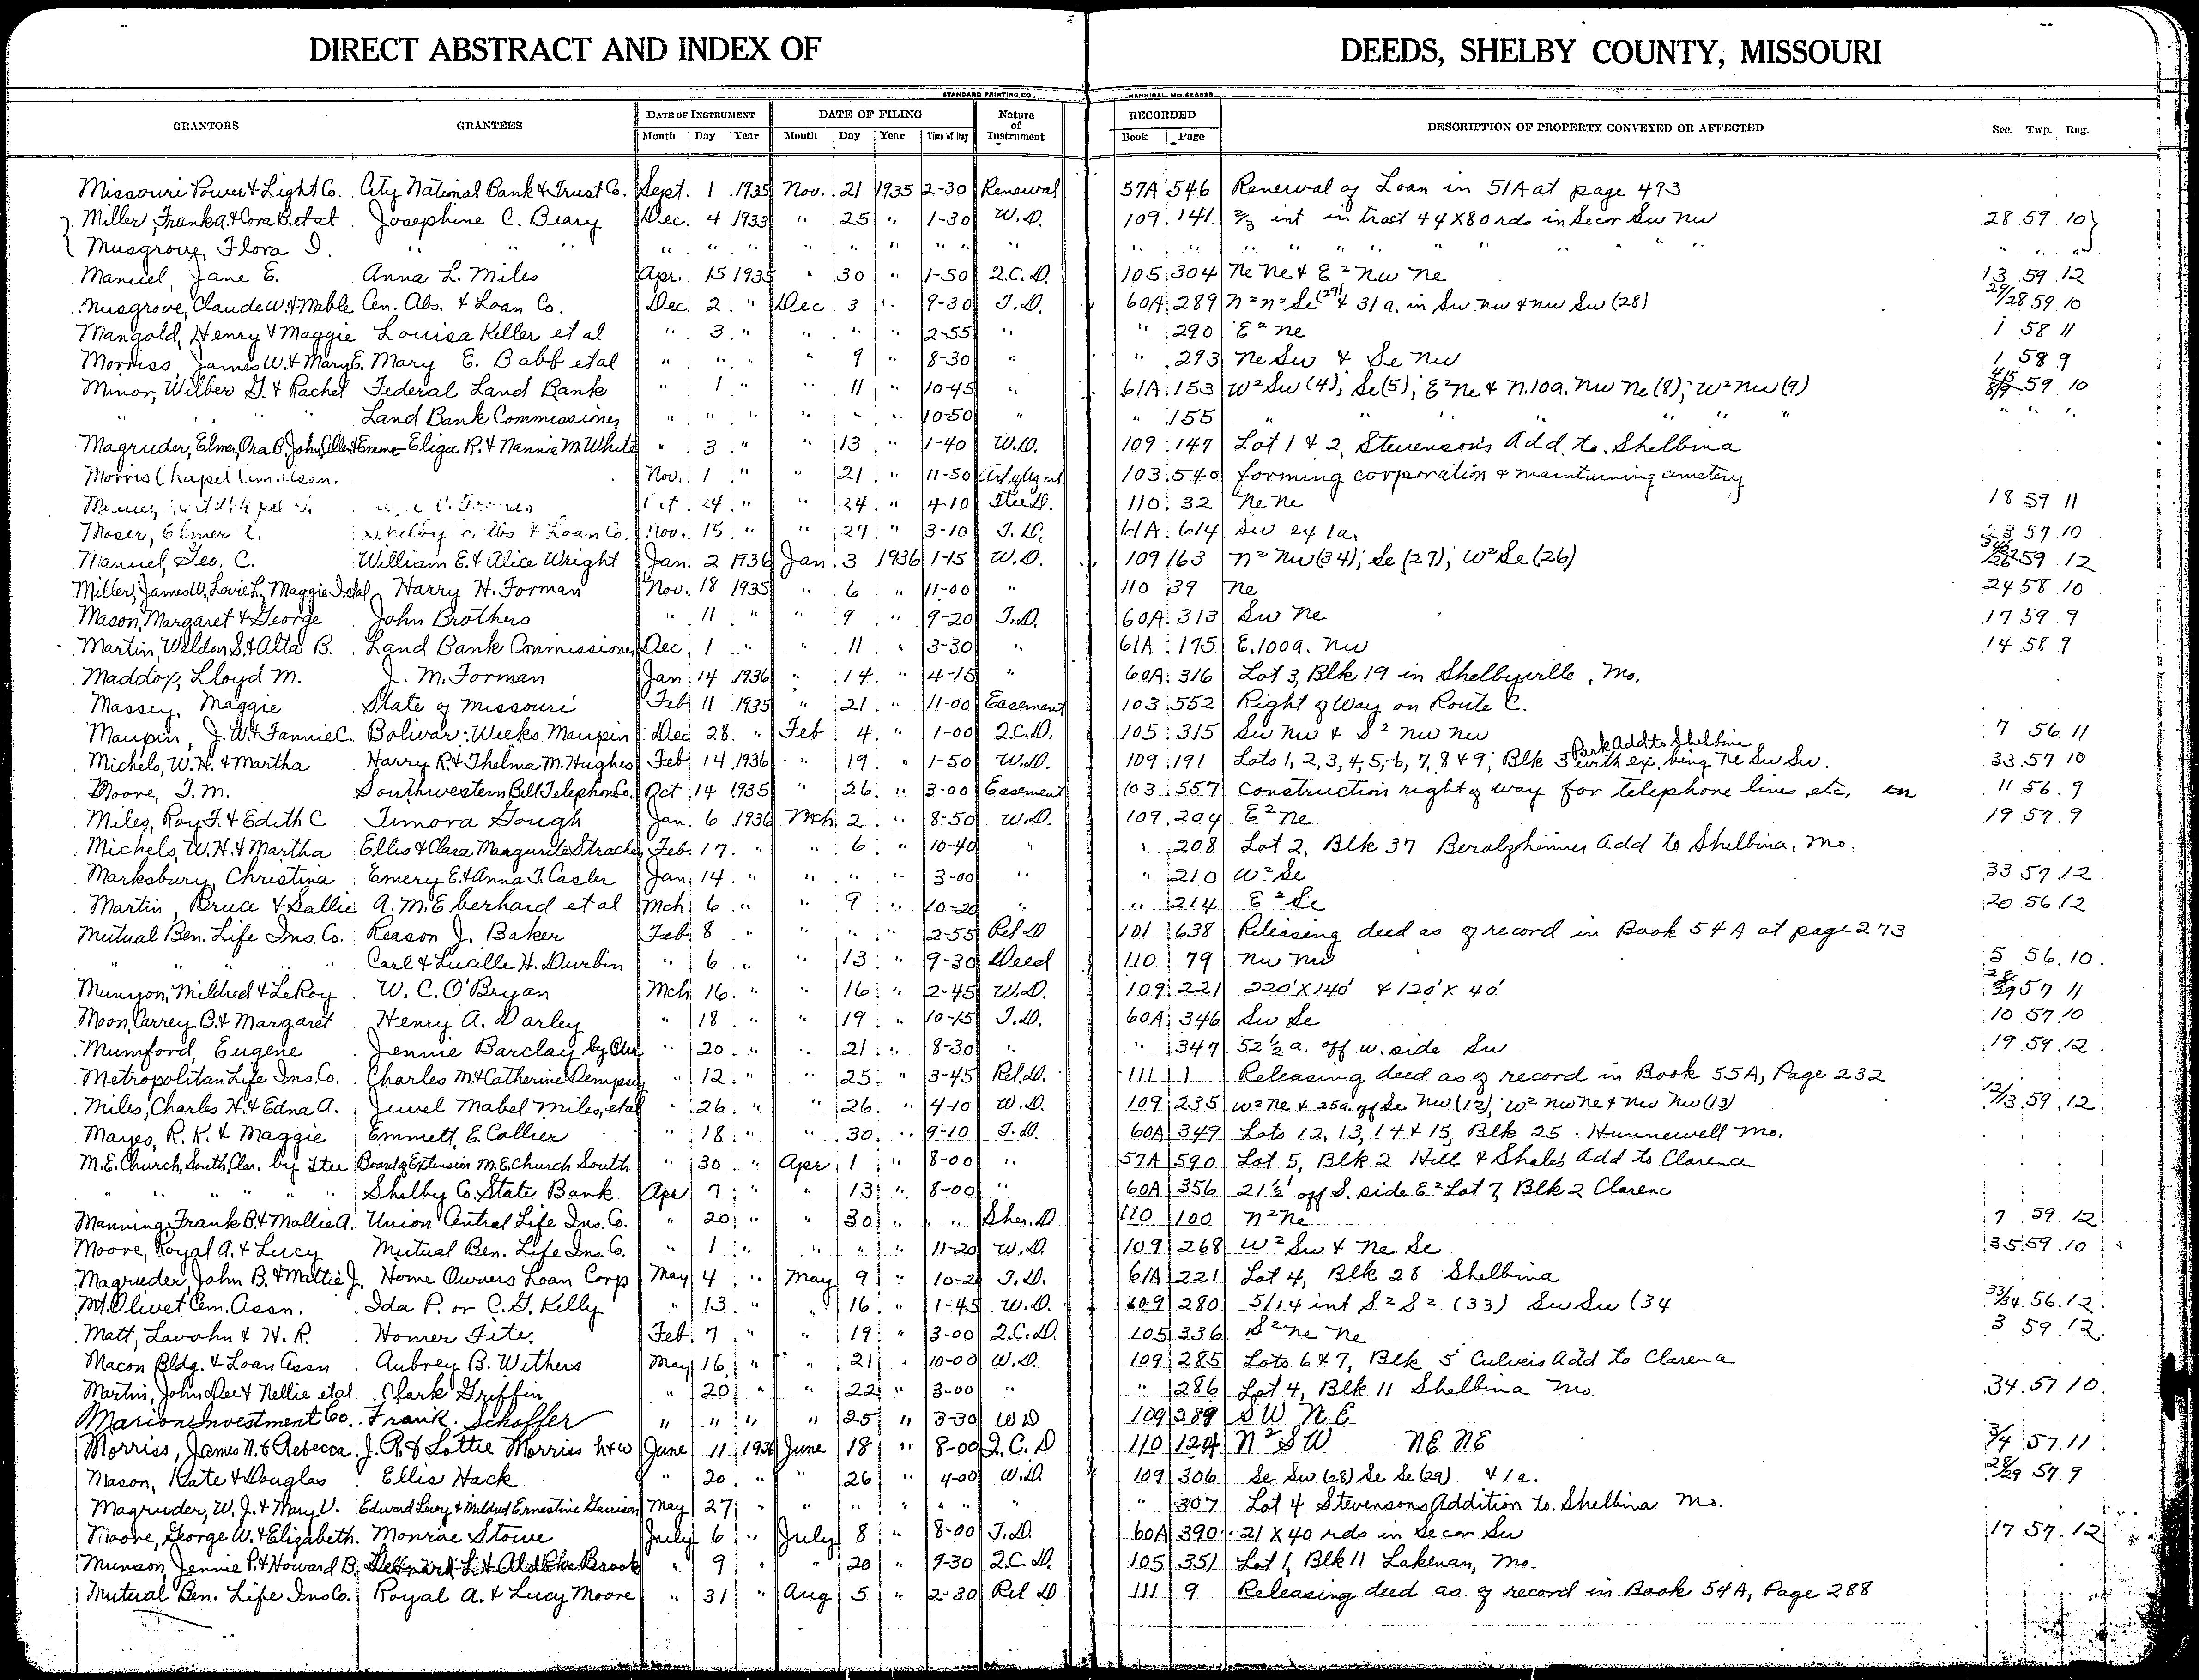 DIRECT ABSTRACT AND INDEX OF DEEDS, SHELBY COUNTY, MISSOURI
STANDARD PRINTING CO. HANNIBAL, MO
GRANTORS GRANTEES DATE OF INSTRUMENT DATE OF FILING Nature of Instrument RECORDED DESCRIPTION OF PROPERTY CONVEYED OR AFFECTED Sec. Twp. Rng.
Month Day Year Month Day Year Time of Day Book Page
Missouri Power & Light Co. City National Bank & Trust Co. Sept. 1 1935 Nov. 21 1935 2-30 Renewal 57A 546 Renewal of Loan in 51A at page 493
Miller, Frank A. & Cora B. et al Josephine C. Beary Dec. 4 1933 " 25 " 1-30 W.D. 109 141 2/3 int in tract 44 X 80 rds in Secor Sw Nw 28 59 10
Musgrove, Flora I. " " " " " " " " " " " " " " " " " " " " "
Manuel, Jane E. Anna L. Miles Apr. 15 1935 " 30 " 1-50 Q.C.D. 105 304 Ne Ne & E² Nw Ne 13 59 12
Musgrove, Claude W. & Mable Cen. Abs. & Loan Co. Dec. 2 " Dec. 3 " 9-30 T.D. 60A 289 N² N² Se (29) & 31 a. in Sw Nw & Nw Sw (28) 29/28 59 10
Mangold, Henry & Maggie Louisa Keller et al " 3 " " " " 2-55 " " 290 E² Ne 1 58 11
Morriss, James W. & Mary E. Mary E. Babb et al " " " " 9 " 8-30 " " 293 Ne Sw & Se Nw 1 58 9
Minor, Wilber G. & Rachel Federal Land Bank " 1 " " 11 " 10-45 " 61A 153 W² Sw (4); Se (5); E² Ne & N. 10 a. Nw Ne (8); W² Nw (9) 4/5 8/9 59 10
" " " " Land Bank Commissioner " " " " " " 10-50 " " 155 " " " " " " " " " "
Magruder, Elmer, Ora B. John, Ollen & Emma Eliga R. & Nannie M. White " 3 " " 13 " 1-40 W.D. 109 147 Lot 1 & 2, Stevenson's Add. to. Shelbina
Morris Chapel Cem. Assn. Nov. 1 " " 21 " 11-50 103 540 forming corporation & maintaining cemetery
Forman Oct 24 " " 24 " 4-10 110 32 Ne Ne 18 59 11
Moser, Elmer Shelby Co. Abs & Loan Co. Nov. 15 " " 27 " 3-10 T.D. 61A 614 Sw ex 1a. 57 10
Manuel, Geo. C. William E. & Alice Wright Jan. 2 1936 Jan. 3 1936 1-15 W.D. 109 163 N² Nw (34); Se (27); W² Se (26) 34/27/26 59 12
Miller, James W., Lovie L., Maggie I. et al Harry H. Forman Nov. 18 1935 " 6 " 11-00 " 110 39 Ne 24 58 10
Mason, Margaret & George John Brothers " 11 " " 9 " 9-20 T.D. 60A 313 Sw Ne 17 59 9
Martin, Weldon S. & Alta B. Land Bank Commissioner Dec. 1 " " 11 " 3-30 " 61A 175 E. 100 a. Nw 14 58 9
Maddox, Lloyd M. J. M. Forman Jan. 14 1936 " 14 " 4-15 " 60A 316 Lot 3, Blk 19 in Shelbyville, Mo.
Massey, Maggie State of Missouri Feb. 11 1935 " 21 " 11-00 Easement 103 552 Right of Way on Route C.
Maupin, J. W. & Fannie C. Bolivar Weeks Maupin Dec 28 " Feb 4 " 1-00 Q.C.D. 105 315 Sw Nw & S² Nw Nw 7 56 11
Michels, W. H. & Martha Harry R. & Thelma M. Hughes Feb. 14 1936 " 19 " 1-50 W.D. 109 191 Lots 1, 2, 3, 4, 5, 6, 7, 8 & 9; Blk 3 Park Add to Shelbina with ex, being Ne Sw Sw. 33 57 10
Moore, T. M. Southwestern Bell Telephone Co. Oct 14 1935 " 26 " 3-00 Easement 103 557 Construction right of way for telephone lines, etc. on 11 56 9
Miles, Roy F. & Edith C Timora Gough Jan. 6 1936 Mch. 2 " 8-50 W.D. 109 204 E² Ne 19 57 9
Michels, W. H. & Martha Ellis & Clara Margurite Feb. 17 " " 6 " 10-40 " " 208 Lot 2, Blk 37 Beralzheimer Add to Shelbina, Mo.
Marksbury, Christina Emery E. & Anna F. Casler Jan. 14 " " " " 3-00 " " 210 W² Se 33 57 12
Martin, Bruce & Sallie A. M. Eberhard et al Mch 6 " " 9 " 10-20 " " 214 E² Se 20 56 12
Mutual Ben. Life Ins. Co. Reason J. Baker Feb. 8 " " " " 2-55 Rel D 101 638 Releasing deed as of record in Book 54A at page 273
" " " " Carl & Lucille H. Durbin " 6 " " 13 " 9-30 Deed 110 79 Nw Nw 5 56 10
Munyon, Mildred & LeRoy W. C. O'Bryan Mch 16 " " 16 " 2-45 W.D. 109 221 220' X 140' & 120' X 40' 57 11
Moon, Carrey B. & Margaret Henry A. Darley " 18 " " 19 " 10-15 T.D. 60A 346 Sw Se 10 57 10
Mumford, Eugene Jennie Barclay by " 20 " " 21 " 8-30 " " 347 52 1/2 a. off w. side Sw 19 59 12
Metropolitan Life Ins. Co. Charles M. & Catherine Dempsey " 12 " " 25 " 3-45 Rel. D. 111 1 Releasing deed as of record in Book 55A, Page 232
Miles, Charles H. & Edna A. Jewel Mabel Miles, et al " 26 " " 26 " 4-10 W.D. 109 235 W² Ne & 25a. off Se Nw (12); W² Nw Ne & Nw Nw (13) 12/13 59 12
Mayes, R. K. & Maggie Emmett E. Collier " 18 " " 30 " 9-10 T.D. 60A 349 Lots 12, 13, 14 & 15, Blk 25 Hunnewell Mo.
M. E. Church, South, Clar. by Stee Board of Extension M. E. Church South " 30 " Apr 1 " 8-00 " 57A 590 Lot 5, Blk 2 Hill & Shale's Add to Clarence
" " " " " Shelby Co. State Bank Apr 7 " " 13 " 8-00 " 60A 356 21 1/2' off S. side E² Lot 7, Blk 2 Clarenc
Manning, Frank B. & Mollie A. Union Central Life Ins. Co. " 20 " " 30 " " Sher. D 110 100 N² Ne 7 59 12
Moore, Royal A. & Lucy Mutual Ben. Life Ins. Co. " 1 " " " " 11-20 W.D. 109 268 W² Sw & Ne Se 35 59 10
Magruder, John B. & Mattie J. Home Owners Loan Corp May 4 " May 9 " 10-2 T.D. 61A 221 Lot 4, Blk 28 Shelbina
Mt. Olivet Cem. Assn. Ida P. or C. G. Kelly " 13 " " 16 " 1-45 W.D. 109 280 5/14 int S² S² (33) Sw Sw (34 33/34 56 12
Matt, Lavohn & H. R. Homer Fite. Feb. 7 " " 19 " 3-00 Q.C.D. 105 336 S² Ne Ne 3 59 12
Macon Bldg. & Loan Assn Aubrey B. Withers May 16 " " 21 " 10-00 W.D. 109 285 Lots 6 & 7, Blk 5 Culvers Add to Clarence
Martin, John Lee & Nellie et al Clark Griffin " 20 " " 22 " 3-00 " " 286 Lot 4, Blk 11 Shelbina Mo. 34 57 10
Marion Investment Co. Frank Schoffer " " " " 25 " 3-30 W D 109 289 S W N E
Morriss, James N. & Rebecca J. R. & Lottie Morriss h & w June 11 1936 June 18 " 8-00 Q.C.D 110 124 N² S W NE NE 3/4 57 11
Mason, Kate & Douglas Ellis Hack " 20 " " 26 " 4-00 W.D. 109 306 Se Sw (28) Se Se (29) & 1 a. 28/29 57 9
Magruder, W. J. & Mary V. Edward Levy & Mildred Ernestine Garrison May 27 " " " " " " " " 307 Lot 4 Stevensons Addition to Shelbina Mo.
Moore, George W. & Elizabeth Monroe Stowe July 6 " July 8 " 8-00 T.D. 60A 390 21 X 40 rds in Secor Sw 17 57 12
Munson, Jennie P. & Howard B. " 9 " " 20 " 9-30 Q.C.D. 105 351 Lot 1, Blk 11 Lakenan, Mo.
Mutual Ben. Life Ins Co. Royal A. & Lucy Moore " 31 " Aug 5 " 2-30 Rel D 111 9 Releasing deed as of record in Book 54A, Page 288